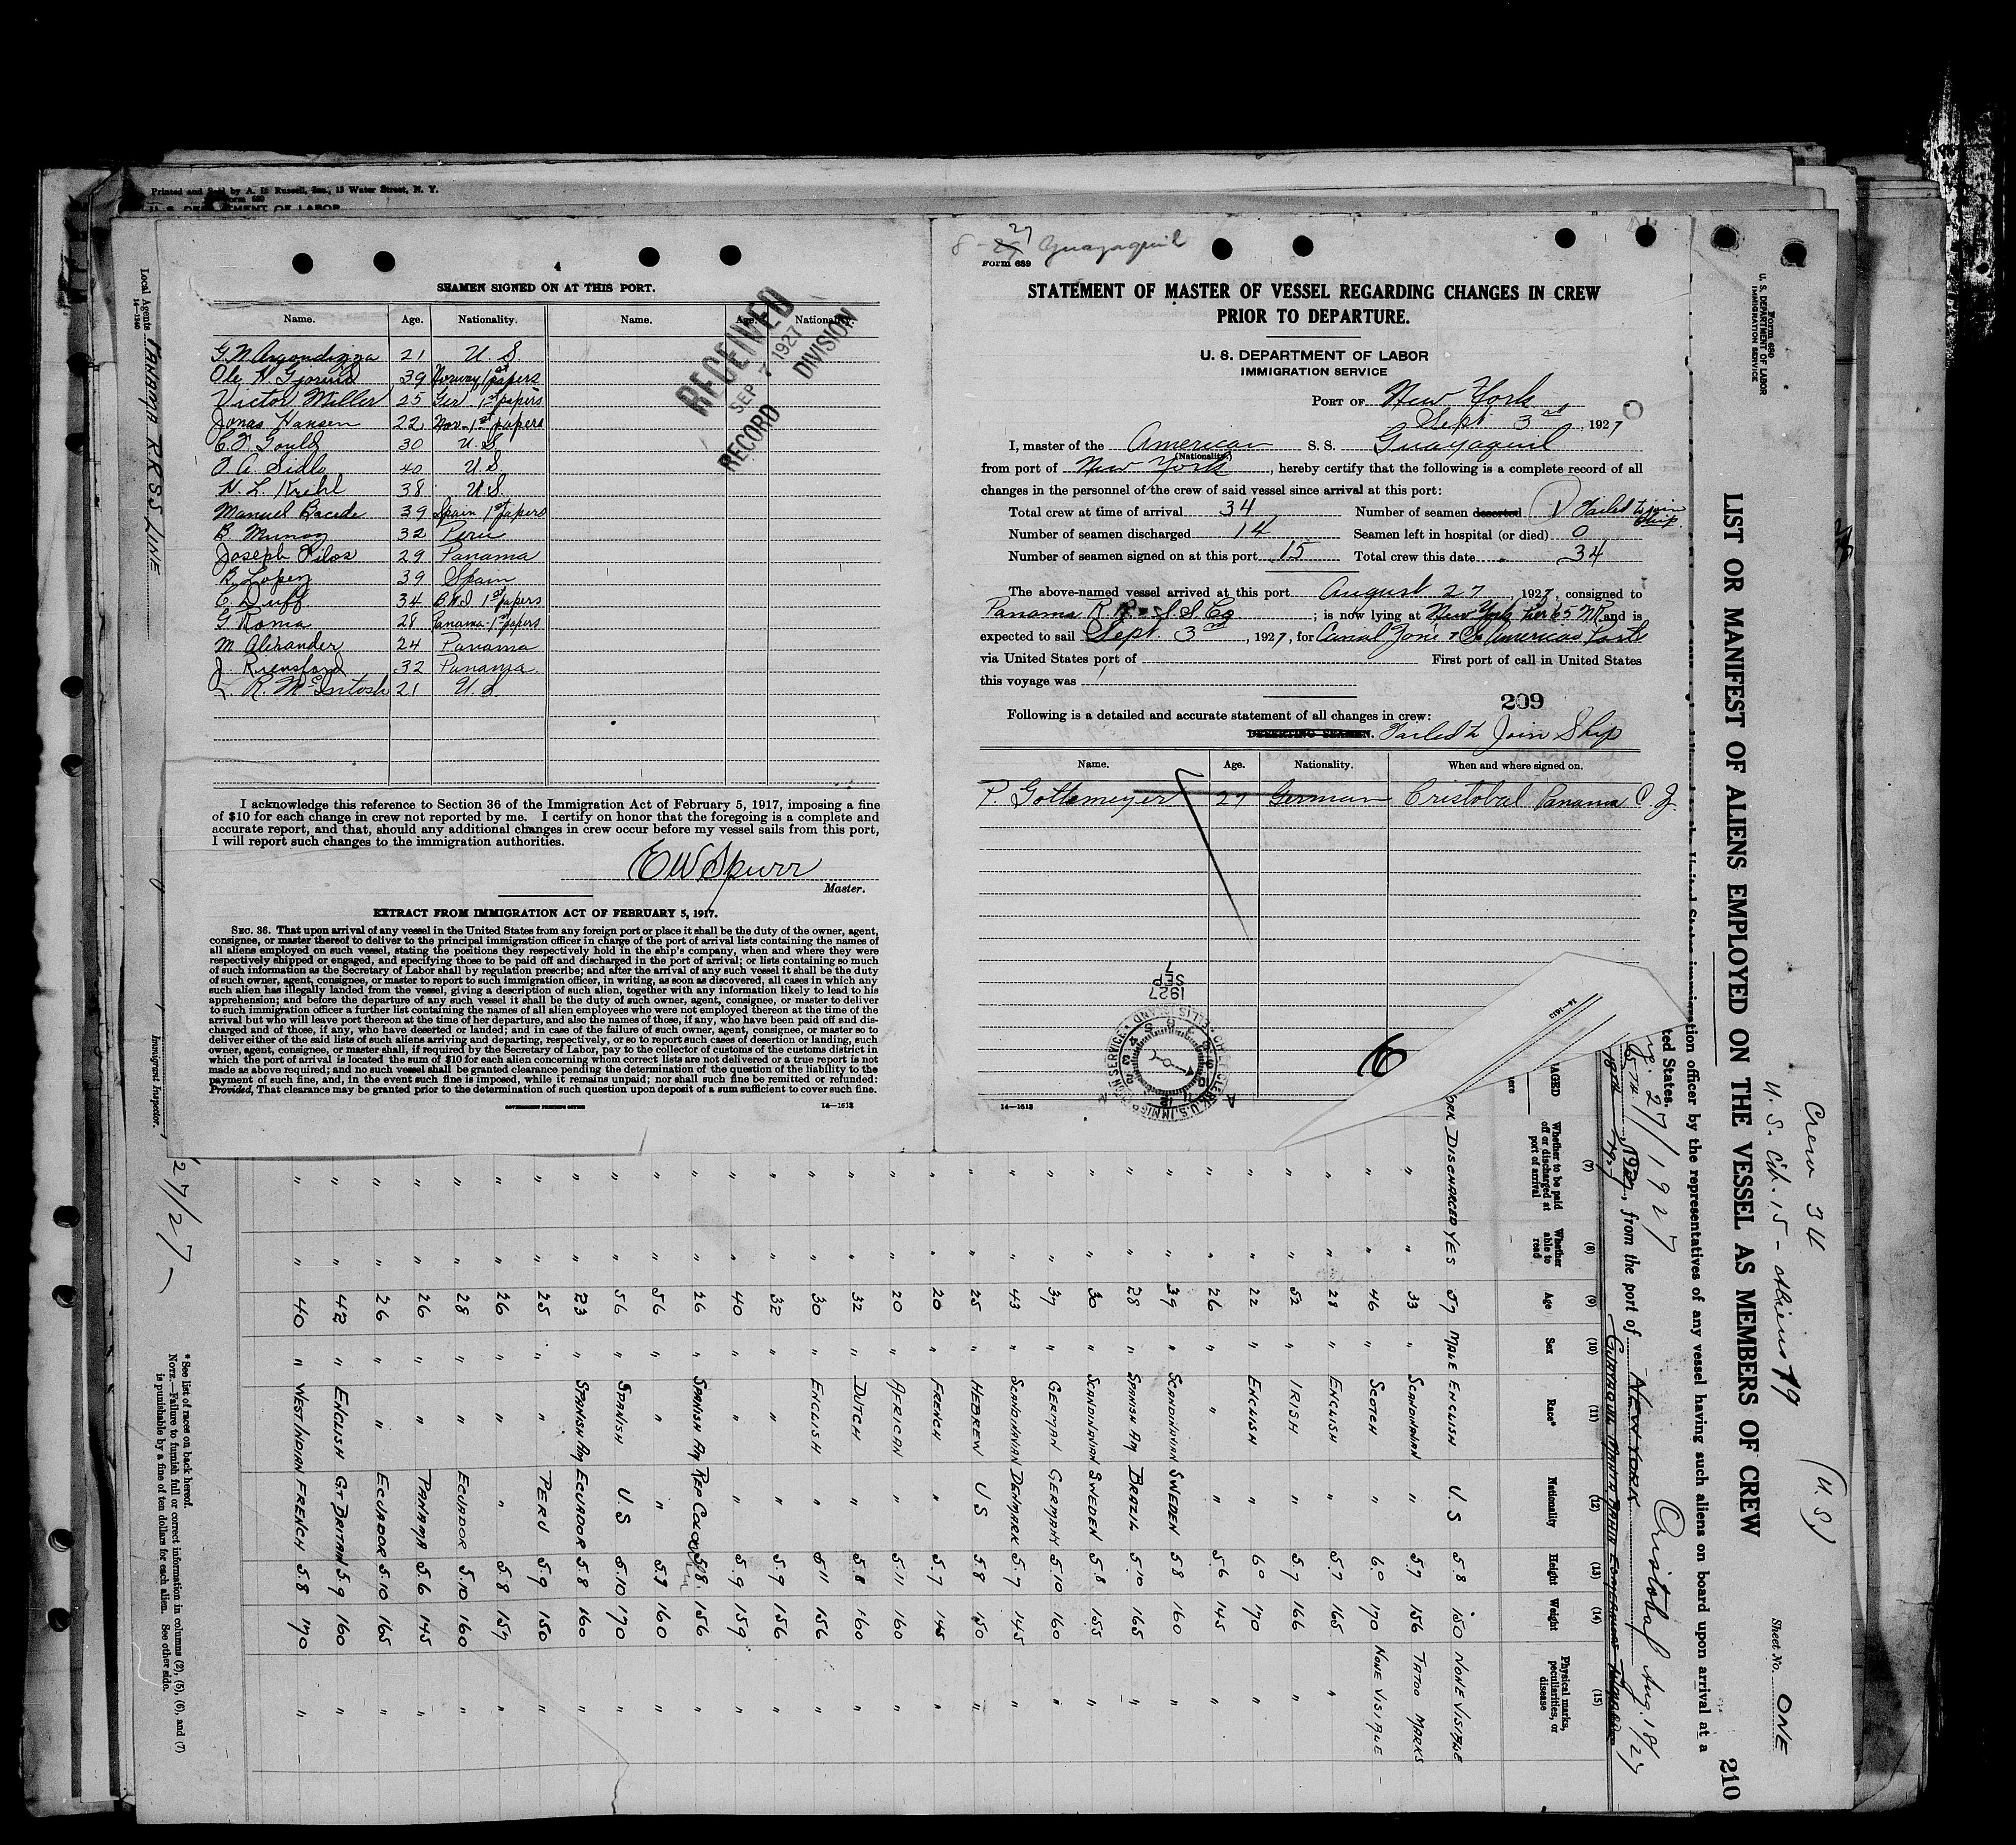 Printed and Sold by A. D. Russell, Inc., 13 Water Street, N. Y.
Form 680
U. S. DEPARTMENT OF LABOR
Local Agents PANAMA R.R. S.S. LINE
14—1240
Immigrant Inspector.
4
SEAMEN SIGNED ON AT THIS PORT.
Name. Age. Nationality. Name. Age. Nationality.
G. N. Argondizza 21 U. S.
Ole N. Gjorud 39 Norway 1st papers
Victor Miller 25 Ger. 1st papers
Jonas Hansen 22 Nor. 1st papers
C. F. Gould 30 U. S.
40 U. S.
N. L. Krihl 38 U. S.
Manuel Bacede 39 Spain 1st papers
B Munoz 32 Peru
Joseph Filos 29 Panama
B Lopez 39 Spain
C. Duff 34 B.W.I 1st papers
G Roma 28 Panama 1st papers
M Alexander 24 Panama
J. Riensford 32 Panama
L. R. McIntosh 21 U. S.
RECEIVED
SEP 7 1927
RECORD DIVISION
I acknowledge this reference to Section 36 of the Immigration Act of February 5, 1917, imposing a fine
of $10 for each change in crew not reported by me. I certify on honor that the foregoing is a complete and
accurate report, and that, should any additional changes in crew occur before my vessel sails from this port,
I will report such changes to the immigration authorities.
E W Spurr
Master.
EXTRACT FROM IMMIGRATION ACT OF FEBRUARY 5, 1917.
SEC. 36. That upon arrival of any vessel in the United States from any foreign port or place it shall be the duty of the owner, agent,
consignee, or master thereof to deliver to the principal immigration officer in charge of the port of arrival lists containing the names of
all aliens employed on such vessel, stating the positions they respectively hold in the ship's company, when and where they were
respectively shipped or engaged, and specifying those to be paid off and discharged in the port of arrival; or lists containing so much
of such information as the Secretary of Labor shall by regulation prescribe; and after the arrival of any such vessel it shall be the duty
of such owner, agent, consignee, or master to report to such immigration officer, in writing, as soon as discovered, all cases in which any
such alien has illegally landed from the vessel, giving a description of such alien, together with any information likely to lead to his
apprehension; and before the departure of any such vessel it shall be the duty of such owner, agent, consignee, or master to deliver
to such immigration officer a further list containing the names of all alien employees who were not employed thereon at the time of the
arrival but who will leave port thereon at the time of her departure, and also the names of those, if any, who have been paid off and dis-
charged and of those, if any, who have deserted or landed; and in case of the failure of such owner, agent, consignee, or master so to
deliver either of the said lists of such aliens arriving and departing, respectively, or so to report such cases of desertion or landing, such
owner, agent, consignee, or master shall, if required by the Secretary of Labor, pay to the collector of customs of the customs district in
which the port of arrival is located the sum of $10 for each alien concerning whom correct lists are not delivered or a true report is not
made as above required; and no such vessel shall be granted clearance pending the determination of the question of the liability to the
payment of such fine, and, in the event such fine is imposed, while it remains unpaid; nor shall such fine be remitted or refunded:
Provided, That clearance may be granted prior to the determination of such question upon deposit of a sum sufficient to cover such fine.
GOVERNMENT PRINTING OFFICE 14—1613
8 - 29 27 Guayaquil
Form 689
STATEMENT OF MASTER OF VESSEL REGARDING CHANGES IN CREW
PRIOR TO DEPARTURE.
U. S. DEPARTMENT OF LABOR
IMMIGRATION SERVICE
PORT OF New York
Sept 3rd, 1927
I, master of the American S. S. Guayaquil
(Nationality.)
from port of New York, hereby certify that the following is a complete record of all
changes in the personnel of the crew of said vessel since arrival at this port:
Total crew at time of arrival 34 Number of seamen deserted 1 Failed to join Ship.
Number of seamen discharged 14 Seamen left in hospital (or died) 0
Number of seamen signed on at this port 15 Total crew this date 34
The above-named vessel arrived at this port August 27, 1927, consigned to
Panama R. R. S. S. Co; is now lying at New York Pier 65 NR and is
expected to sail Sept. 3rd, 1927, for Canal Zone & So American Ports
via United States port of First port of call in United States
this voyage was
209
Following is a detailed and accurate statement of all changes in crew:
DESERTING SEAMEN. Failed to Join Ship
Name. Age. Nationality. When and where signed on.
P. Gottsmeyer 27 German Cristobal Panama C. Z.
1927
SEP
7
CHIEF CLERK, U.S. IMMIGRATION SERVICE, ELLIS ISLAND
6
14—1613
14-1613
Form 680
U. S. DEPARTMENT OF LABOR
IMMIGRATION SERVICE
Crew 34
U. S. Cit. 15 - Aliens 19
(U.S.)
Sheet No. ONE
210
LIST OR MANIFEST OF ALIENS EMPLOYED ON THE VESSEL AS MEMBERS OF CREW
immigration officer by the representatives of any vessel having such aliens on board upon arrival at a
ted States.
27/1927 Cristobal Aug. 18/27
, from the port of NEW YORK
(7) Whether to be paid off or discharged at port of arrival
(8) Whether able to read
(9) Age
(10) Sex
(11) Race*
(12) Nationality
(13) Height
(14) Weight
(15) Physical marks, peculiarities, or disease
DISCHARGED YES 57 MALE ENGLISH U. S 5.8 150 NONE VISIBLE
" " 33 " SCANDINAVIAN " 5.7 156 TATOO MARKS
46 " SCOTCH " 6.0 170 NONE VISIBLE
" " 28 " ENGLISH " 5.7 165 "
" " 52 " IRISH " 5.7 166 "
22 " ENGLISH " 6.0 170
" " 26 " " " 5.6 145 "
" " 39 " SCANDINAVIAN SWEDEN 5.8 160 "
" " 28 " SPANISH AM BRAZIL 5.10 165 "
" " 30 " SCANDINAVIAN SWEDEN 5.8 155 "
" " 37 " GERMAN GERMANY 5.10 160 "
" " 43 " SCANDINAVIAN DENMARK 5.7 145 "
" " 25 " HEBREW U S 5.8 150 "
" " 20 " FRENCH " 5.7 145 "
" " 20 " AFRICAN " 5.11 160 "
" " 32 " DUTCH " 5.8 160 "
" " 30 " ENGLISH " 5.11 156 "
" " 32 " " " 5.9 156 "
" " 40 " " " 5.9 159 "
" " 26 " SPANISH AM REP COLOMBIA 5.8 156 "
" " 56 " " " 5.9 160 "
" " 56 " SPANISH U. S 5.10 170 "
" " 23 " SPANISH AM ECUADOR 5.8 160 "
" " 25 " " PERU 5.9 150 "
" " 26 " " " 5.8 157 "
" " 28 " " ECUADOR 5.10 160 "
" " 26 " " PANAMA 5.6 145 "
" " 26 " " ECUADOR 5.10 165 "
" " 42 " ENGLISH GT BRITAIN 5.9 160 "
" " 40 " WEST INDIAN FRENCH 5.8 170 "
27/27
* See list of races on back hereof.
NOTE.—Failure to furnish full or correct information in columns (2), (5), (6), and (7)
is punishable by a fine of ten dollars for each alien. See other side.